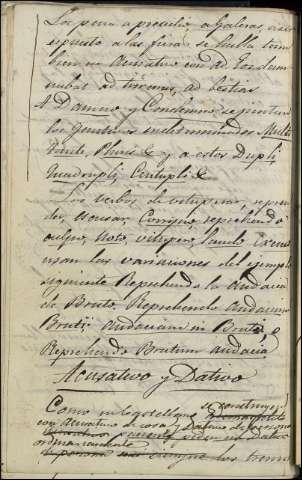 Los pena a presidio, a Galeras,
espuesto a las fieras se halla tam
bien en Acusativo con ad. Eos dam
nabat ad triremes, ad bestias
A Damno y Condemno se juntan
los Genitivos indeterminados Multi
Tanti, Pluris & y a estos Dupli
Quadrupli, Centupli &
Los verbos de vituperar, repren
der, acusar, Corrigo, reprehendo
culpo, noto, vitupero, laudo
usan las variaciones del ejemplo
siguiente Reprehendo la audacia
de Bruto, Reprehendo audaciam
Bruti, audaciam in Bruto, ó
Reprehendo Brutum audacia
Acusativo y Dativo
Como en Castellano se construyen
con Acusativo de cosa y Dativo de persona
ordinariamente
la persona